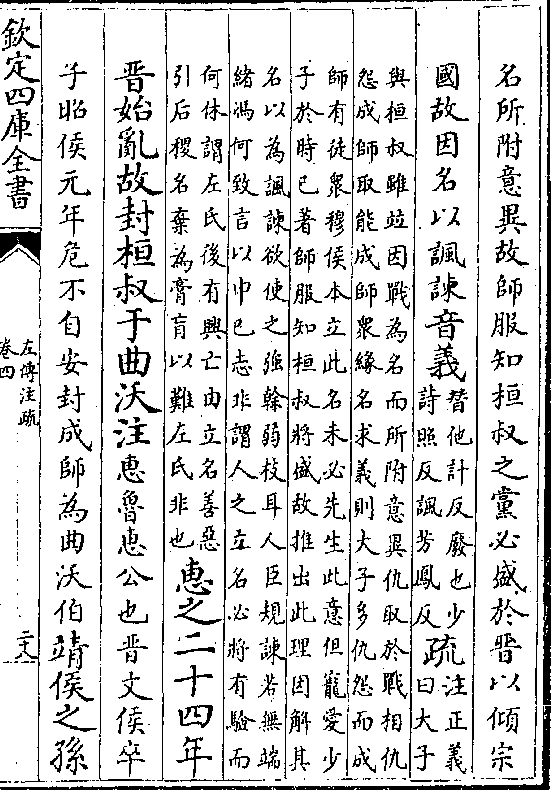 名所附意異故師服知桓叔之黨必盛於晉以傾宗
國故因名以諷諫音義
替他計反廢也少
詩照反諷芳鳳反
疏
注正義
曰大子
與桓叔雖竝因戰為名而所附意異仇取於戰相仇
怨成師取能成師衆緣名求義則大子多仇怨而成
師有徒衆穆侯本立此名未必先生此意但寵愛少
子於時已著師服知桓叔將盛故推出此理因解其
名以為諷諫欲使之強幹弱枝耳人臣規諫若無端
緒馮何致言以申已志非謂人之立名必將有驗而
何休謂左氏後有興亡由立名善惡
引后稷名棄為膏肓以難左氏非也
惠之二十四年
晉始亂故封桓叔于曲沃注惠魯惠公也晉文侯卒
子昭侯元年危不自安封成師為曲沃伯靖侯之孫
欽定四庫全書
左傳注疏
卷四
二六